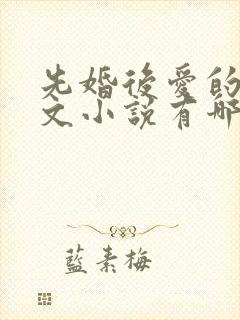 先婚後愛的
文小說有哪
藍素梅